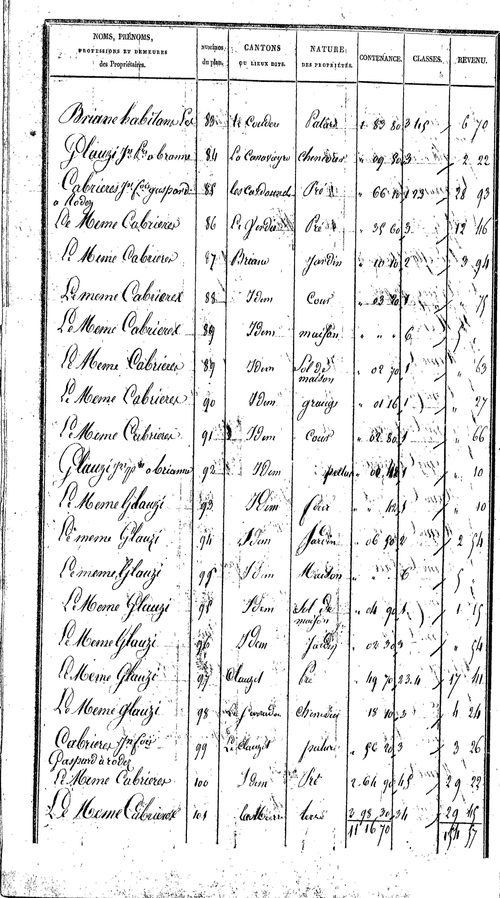 NOMS, PRÉNOMS, PROFESSIONS ET DEMEURES des Propriétaires. | NUMÉROS du plan. | CANTONS OU LIEUX DITS. | NATURE DES PROPRIÉTÉS. | CONTENANCE. | CLASSES. | REVENU.
Briane habitans | 83 | Le | Pature | 1 83 80 | 3 4 5 | 6 70
Glauzi a briane | 84 | | Cheneviere | " 09 80 | 3 | 2 22
Cabrieres gaspard a Rodez | 85 | | Pré | " 66 10 | 1 2 3 | 28 93
Le Meme Cabrieres | 86 | Le | Pré | " 35 60 | 3 | 12 46
Le Meme Cabrieres | 87 | Briane | Jardin | " 10 10 | 2 | 3 94
Le meme Cabrieres | 88 | Idem | Cour | " 03 20 | 1 | " 75
Le Meme Cabrieres | 89 | Idem | maison | " " " | 6
Le Meme Cabrieres | 89 | Idem | Sol de maison | " 02 70 | 1 | " 63
Le Meme Cabrieres | 90 | Idem | grange | " 01 16 | 1 | " 27
Le Meme Cabrieres | 91 | Idem | Cour | " 02 80 | 1 | " 66
Glauzi a brianne | 92 | Idem | | | 1 | " 10
Le Meme Glauzi | 93 | Idem | four | " " 42 | 1 | " 10
Le meme Glauzi | 94 | Idem | Jardin | " 06 50 | 2 | 2 54
Le meme Glauzi | 95 | Idem | Maison | " " " | 6 | 5 "
Le Meme Glauzi | 95 | Idem | Sol de maison | " 04 90 | 1 | 1 15
Le Meme Glauzi | 96 | Idem | Jardin | " 02 30 | 3 | " 54
Le Meme Glauzi | 97 | Clauzel | Pré | " 49 70 | 2 3 4 | 17 41
Le Meme Glauzi | 98 | | Cheneviere | " 18 10 | 3 | 4 24
Cabrieres Gaspard à rodez | 99 | Le Clauzel | pature | " 56 20 | 3 | 3 26
Le Meme Cabrieres | 100 | Idem | Pré | 2 64 90 | 4 5 | 29 22
Le Meme Cabrieres | 101 | | terre | 3 98 30 | 3 4 | 29 45
11 16 70 | 154 57